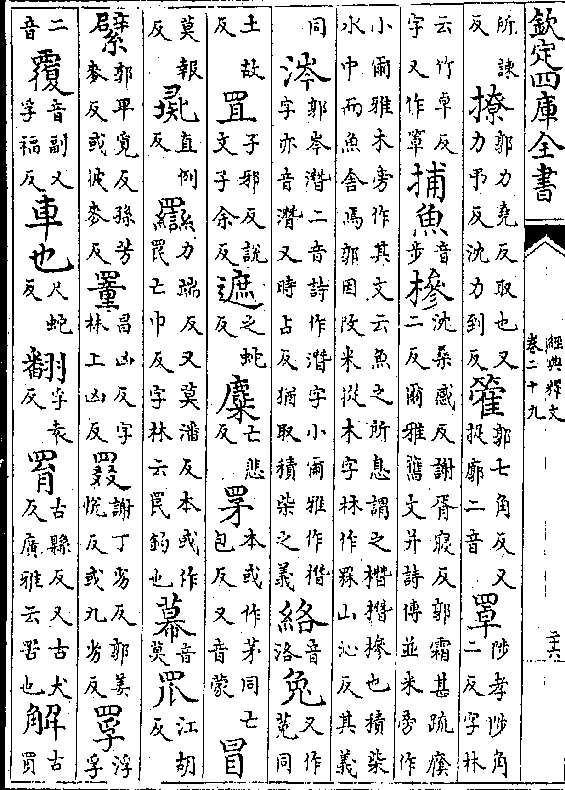 欽定四庫全書
經典釋文
卷二十九
二十六
所諫
反
撩
郭力堯反取也又
力弔反沈力到反
籗
郭七角反又
捉廓二音
罩
陟孝陟角
二反字林
云竹卓反
字又作䈇
捕魚
音
步
椮
沈桑感反謝胥寢反郭霜甚疏廕
二反爾雅舊文并詩傳並米旁作
小爾雅木旁作其文云魚之所息謂之橬橬椮也積柴
水中而魚舍焉郭因改米從木字林作罧山沁反其義
同
涔
郭岑潛二音詩作潛字小爾雅作橬
字亦音潛又時占反猶取積柴之義
絡
音
洛
兔
又作
菟同
土故
反
罝
子邪反說
文子余反
遮
之蛇
反
麋
亡悲
反
罞
本或作茅同亡
包反又音蒙
冒
莫報
反
彘
直例
反
羉
力端反又莫潘反本或作
罠亡巾反字林云罠釣也
幕
音
莫
罛
江胡
反
繴
郭卑覓反孫芳
麥反或彼麥反
罿
昌凶反字
林上凶反
罬
謝丁劣反郭姜
悅反或九劣反
罦
浮
孚
二
音
覆
音副又
孚福反
車也
尺蛇
反
翻
孚袁
反
罥
古縣反又古犬
反廣雅云罟也
解
古
買